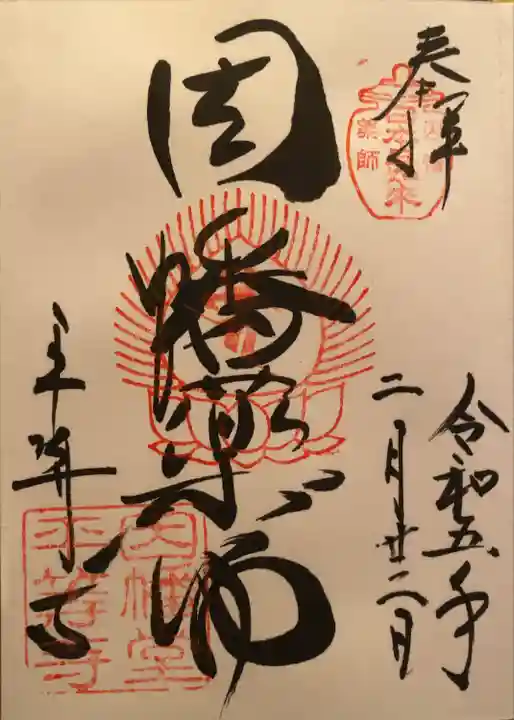 奉拝
令和五年
二月廿二日
因幡薬師
平等寺
因幡堂
平等寺